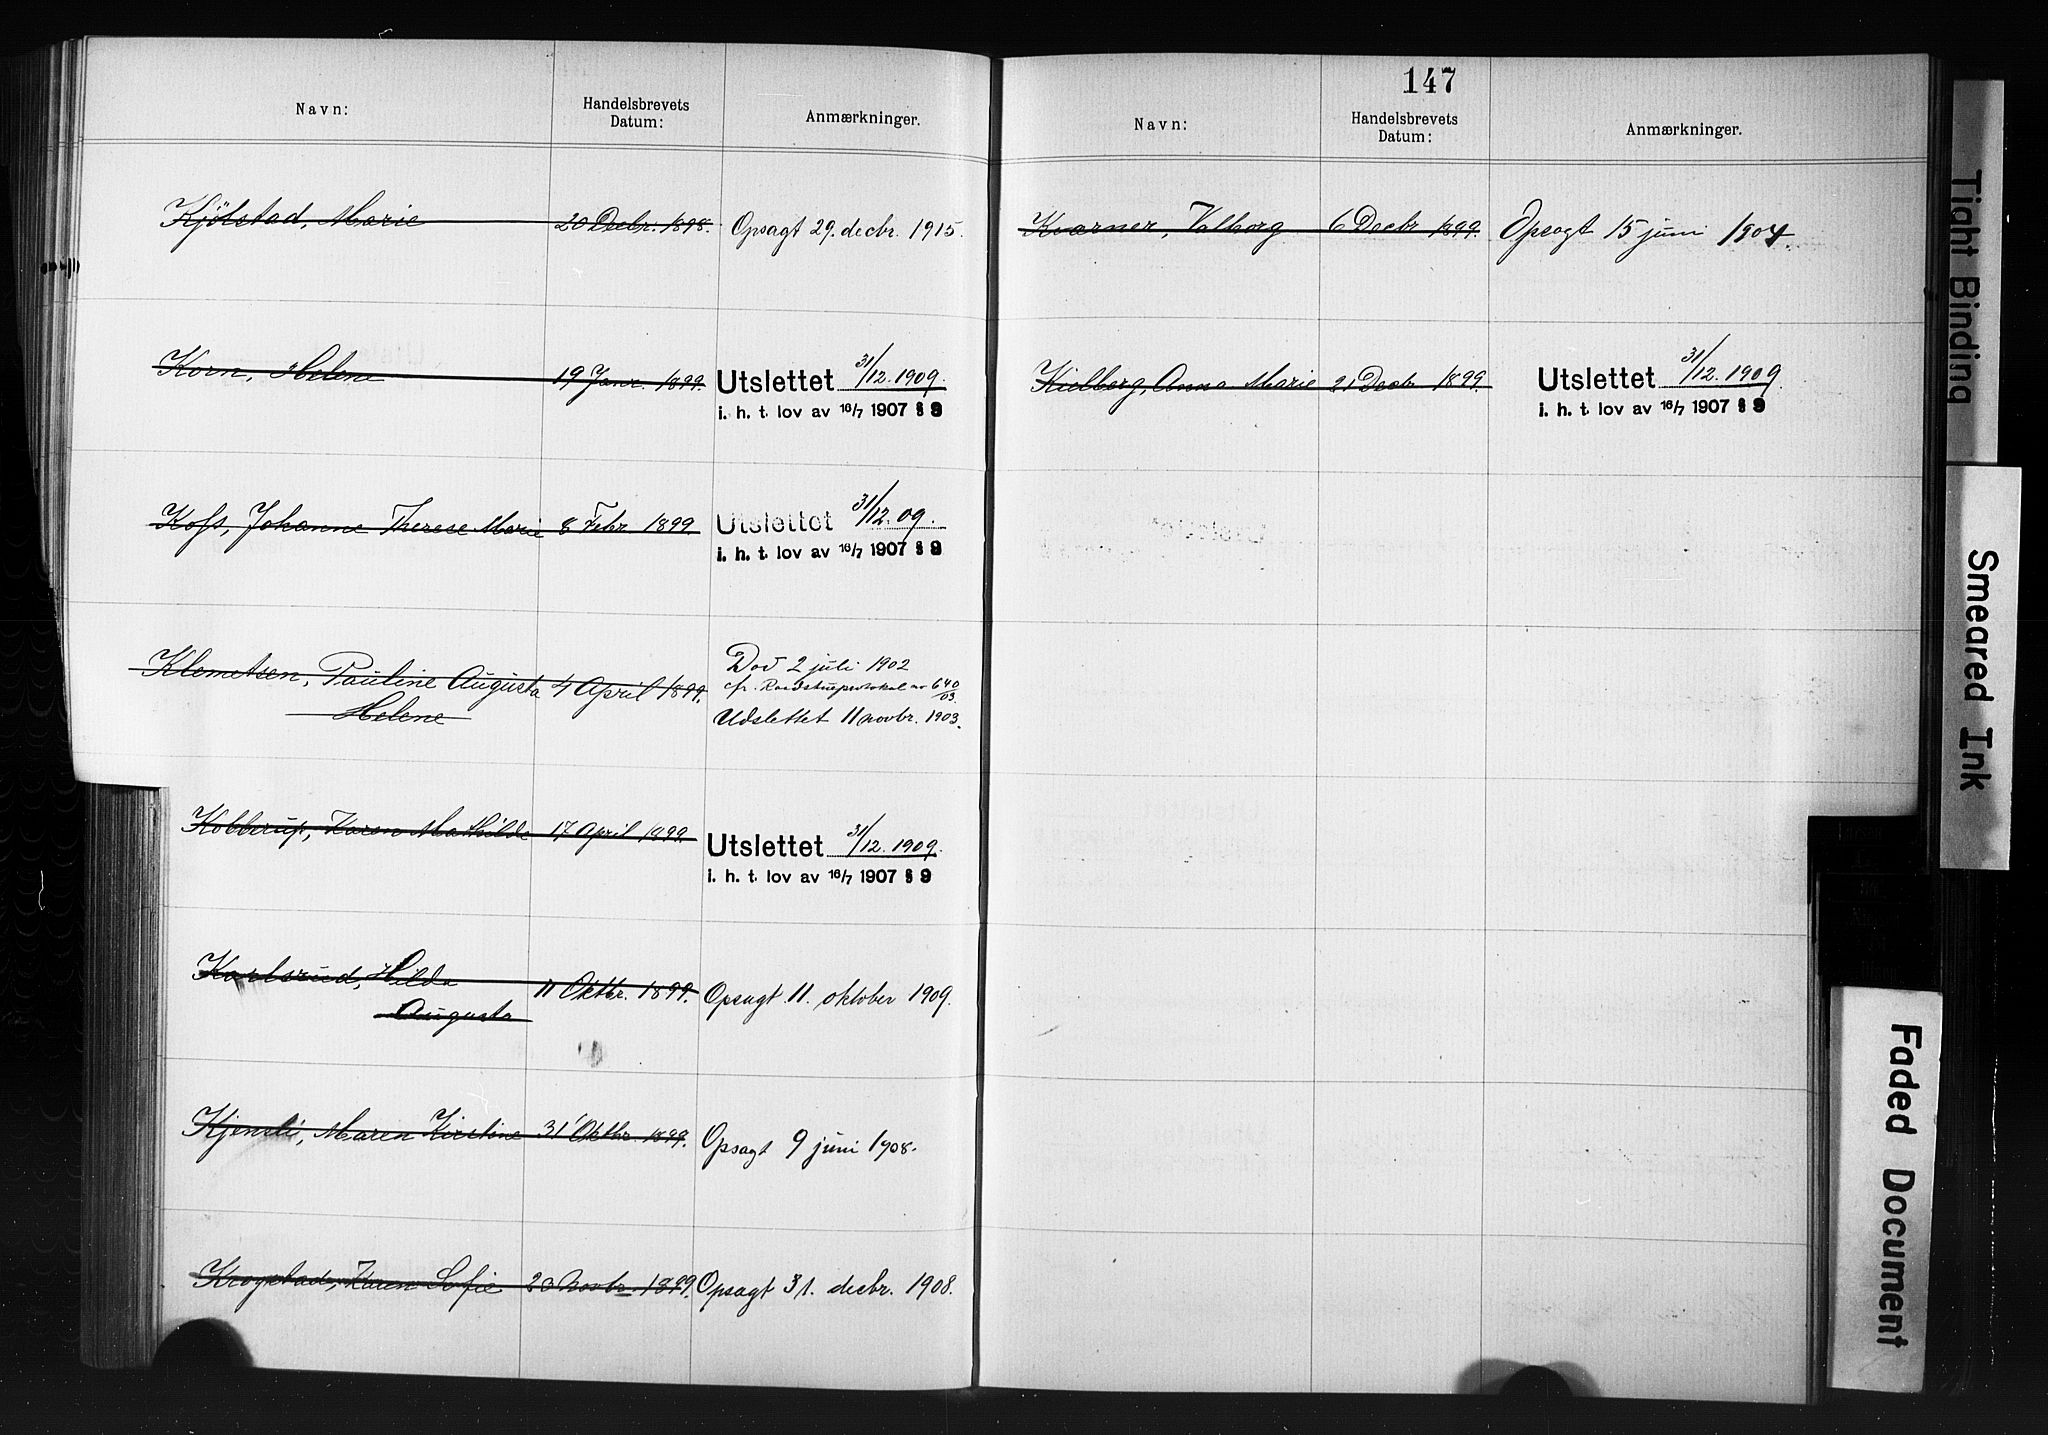 Navn:
Handelsbrevets
Datum:
Anmærkninger.
Kjölstad, Marie 20 Decbr. 1898. Opsagt 29. decbr. 1915.
Korn, Helene 19 Janr. 1899. Utslettet 31/12. 1909.
i. h. t. lov av 16/7 1907 § 9
Koss, Johanne Therese Marie 8 Febr 1899 Utslettet 31/12. 09.
i. h. t. lov av 16/7 1907 § 9
Død 2 juli 1902
Klemetsen, Pauline Augusta 4 April 1899. cfr. Raadstueprotokol no 640/03.
Helene Udslettet 11 novbr. 1903.
Kobberup, Karen Mathilde 17 April 1899. Utslettet 31/12. 1909.
i. h. t. lov av 16/7 1907 § 9
Karlsrud, Hilda 11 Oktbr. 1899. Opsagt 11. oktober 1909.
Augusta
Kjensli, Maren Kirstine 31 Oktbr 1899. Opsagt 9 juni 1908.
Krogstad, Karen Sofie 23 Novbr. 1899. Opsagt 31. decbr. 1908.
147
Navn:
Handelsbrevets
Datum:
Anmærkninger.
Kværner, Valborg 6 Decbr 1899. Opsagt 15 juni 1904.
Kielberg, Anna Marie 21 Decbr 1899. Utslettet 31/12. 1909.
i. h. t. lov av 16/7 1907 § 9
Tight Binding
Smeared Ink
Faded Document